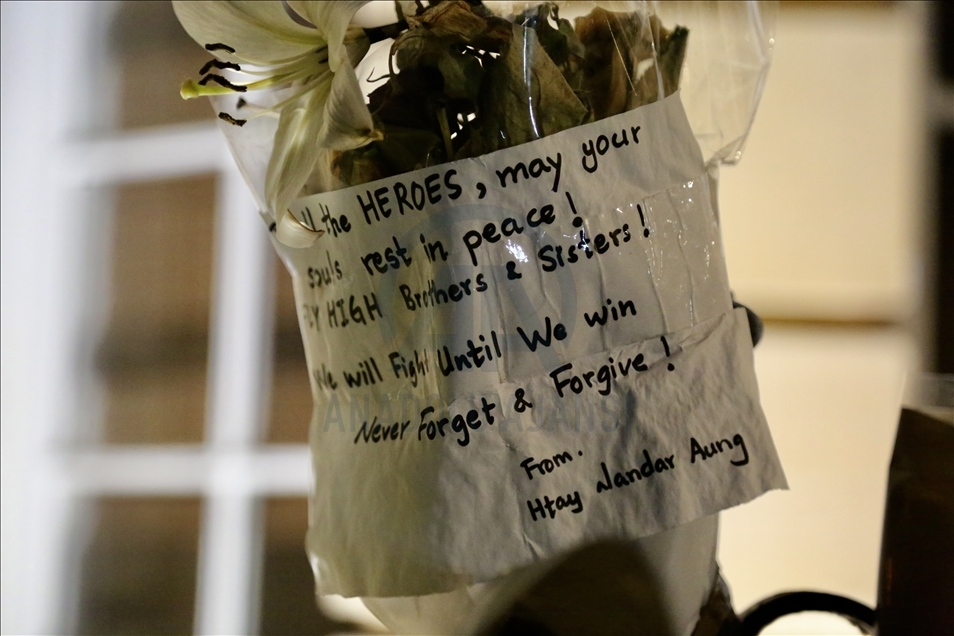 All the HEROES, may your
souls rest in peace!
FLY HIGH Brothers & Sisters!
We will Fight Until We win
Never Forget & Forgive!
From.
Htay Nandar Aung
AA
ANADOLU AJANSI